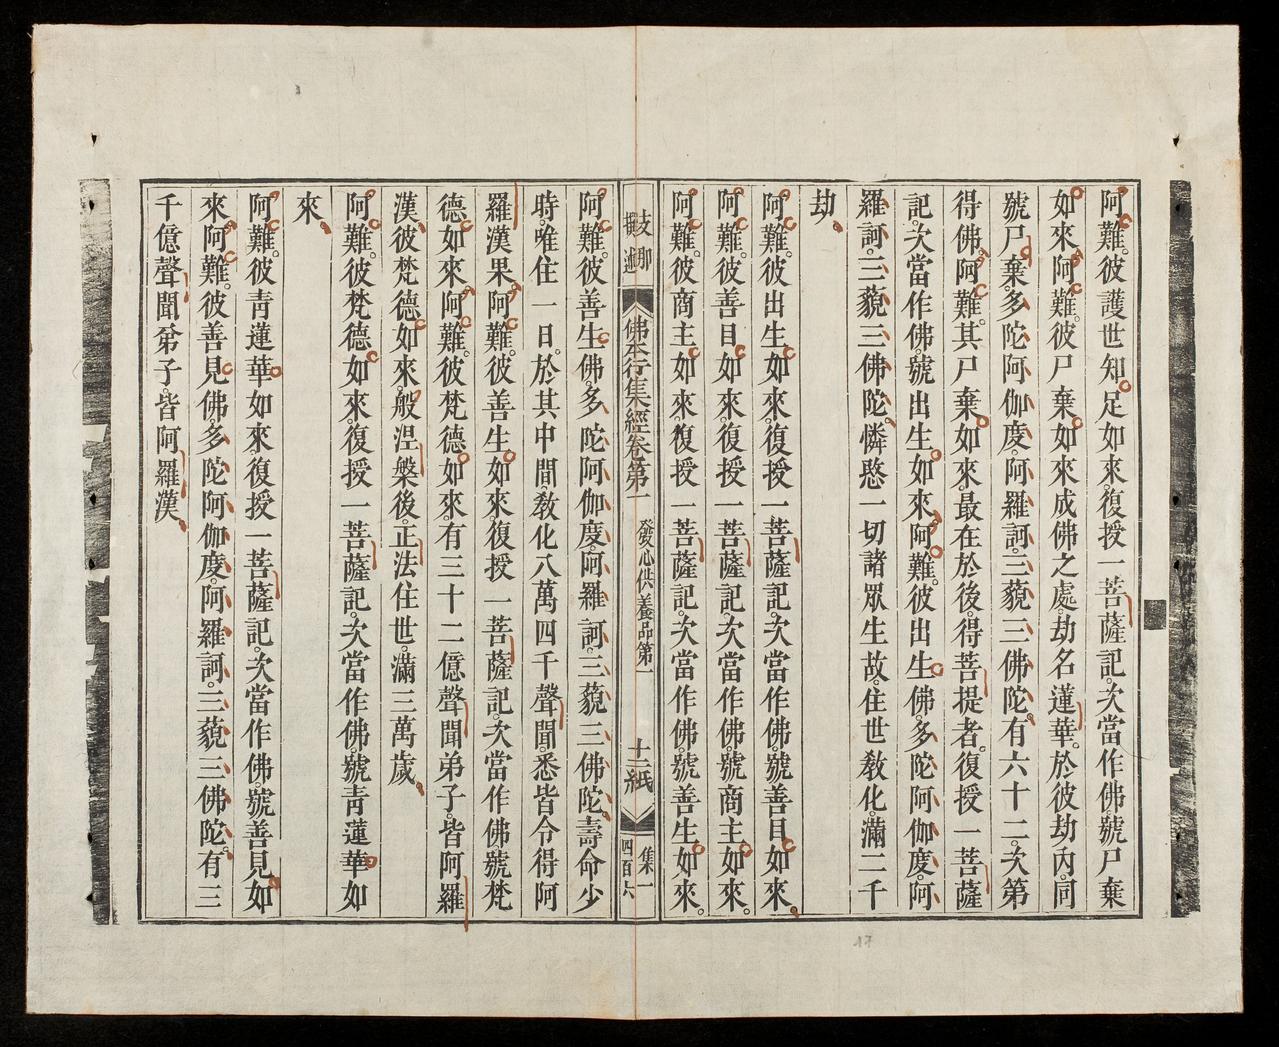 阿難。彼護世知足如來。復授一菩薩記。次當作佛。號尸棄
如來。阿難。彼尸棄如來成佛之處。劫名蓮華。於彼劫內。同
號尸棄。多陀阿伽度。阿羅訶。三藐三佛陀。有六十二。次第
得佛。阿難。其尸棄如來。最在於後。得菩提者。復授一菩薩
記。次當作佛。號出生如來。阿難。彼出生佛。多陀阿伽度。阿
羅訶。三藐三佛陀。憐愍一切諸眾生故。住世教化。滿二千
劫。
阿難。彼出生如來。復授一菩薩記。次當作佛。號善目如來。
阿難。彼善目如來。復授一菩薩記。次當作佛。號商主如來。
阿難。彼商主如來。復授一菩薩記。次當作佛。號善生如來。
支那
撰述
佛本行集經卷第一
發心供養品第一
十三紙
集一
四百六
阿難。彼善生佛。多陀阿伽度。阿羅訶。三藐三佛陀。壽命少
時。唯住一日。於其中間。教化八萬四千聲聞。悉皆令得阿
羅漢果。阿難。彼善生如來。復授一菩薩記。次當作佛。號梵
德如來。阿難。彼梵德如來。有三十二億聲聞弟子。皆阿羅
漢。彼梵德如來。般涅槃後。正法住世。滿三萬歲。
阿難。彼梵德如來。復授一菩薩記。次當作佛。號青蓮華如
來。
阿難。彼青蓮華如來。復授一菩薩記。次當作佛。號善見如
來。阿難。彼善見佛。多陀阿伽度。阿羅訶。三藐三佛陀。有三
千億聲聞弟子。皆阿羅漢。
17